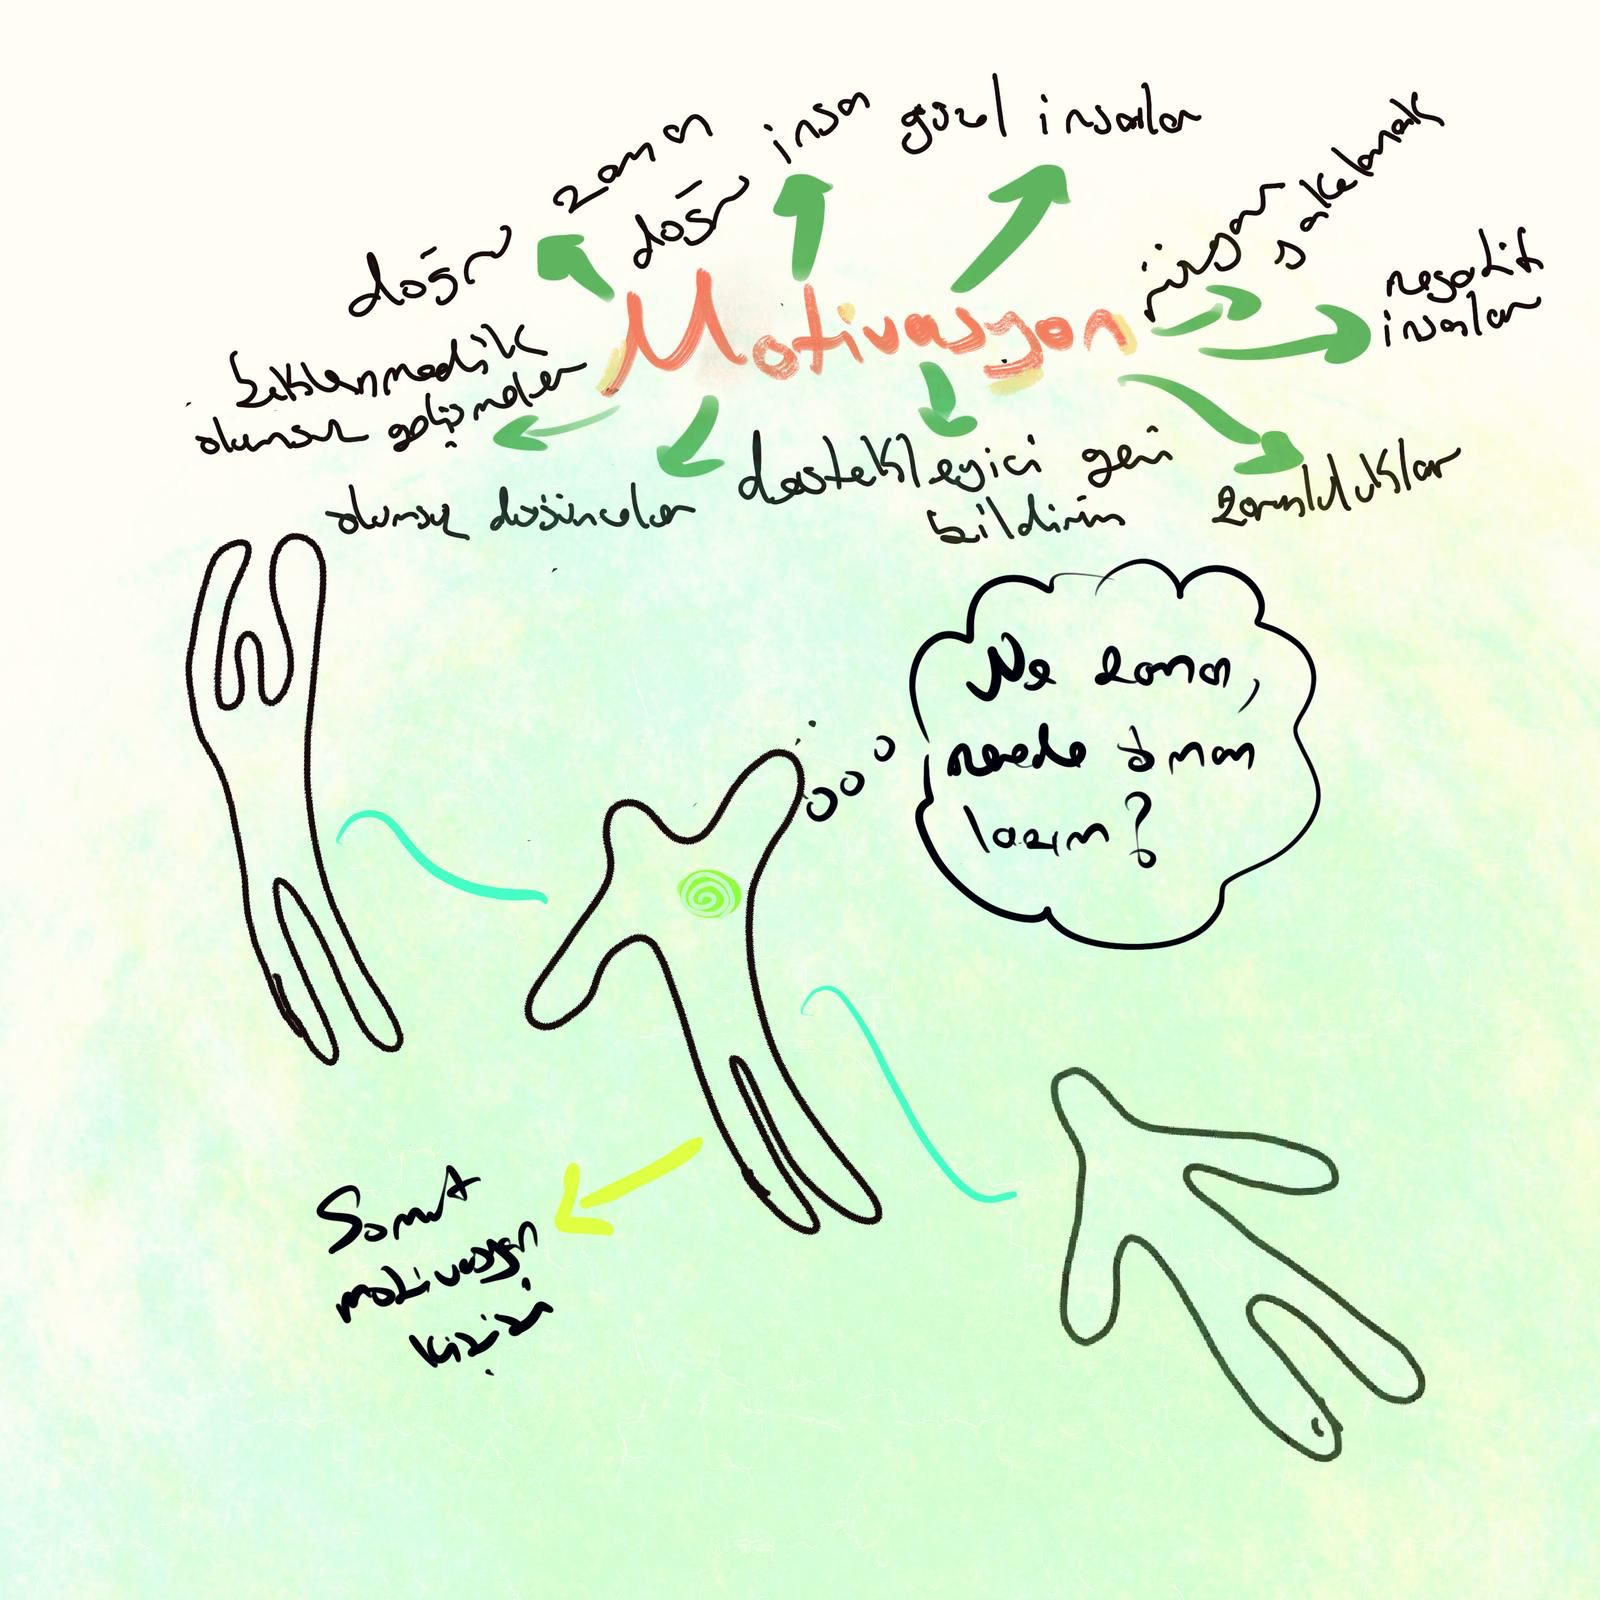 doğru zaman
doğru insan
güzel insanlar
rüzgarı yakalamak
negatif
insanlar
Motivasyon
beklenmedik
olumsuz gelişmeler
olumsuz düşünceler
destekleyici geri
bildirim
zorunluluklar
Ne zaman,
nerede olmam
lazım?
Somut
motivasyon
krizi